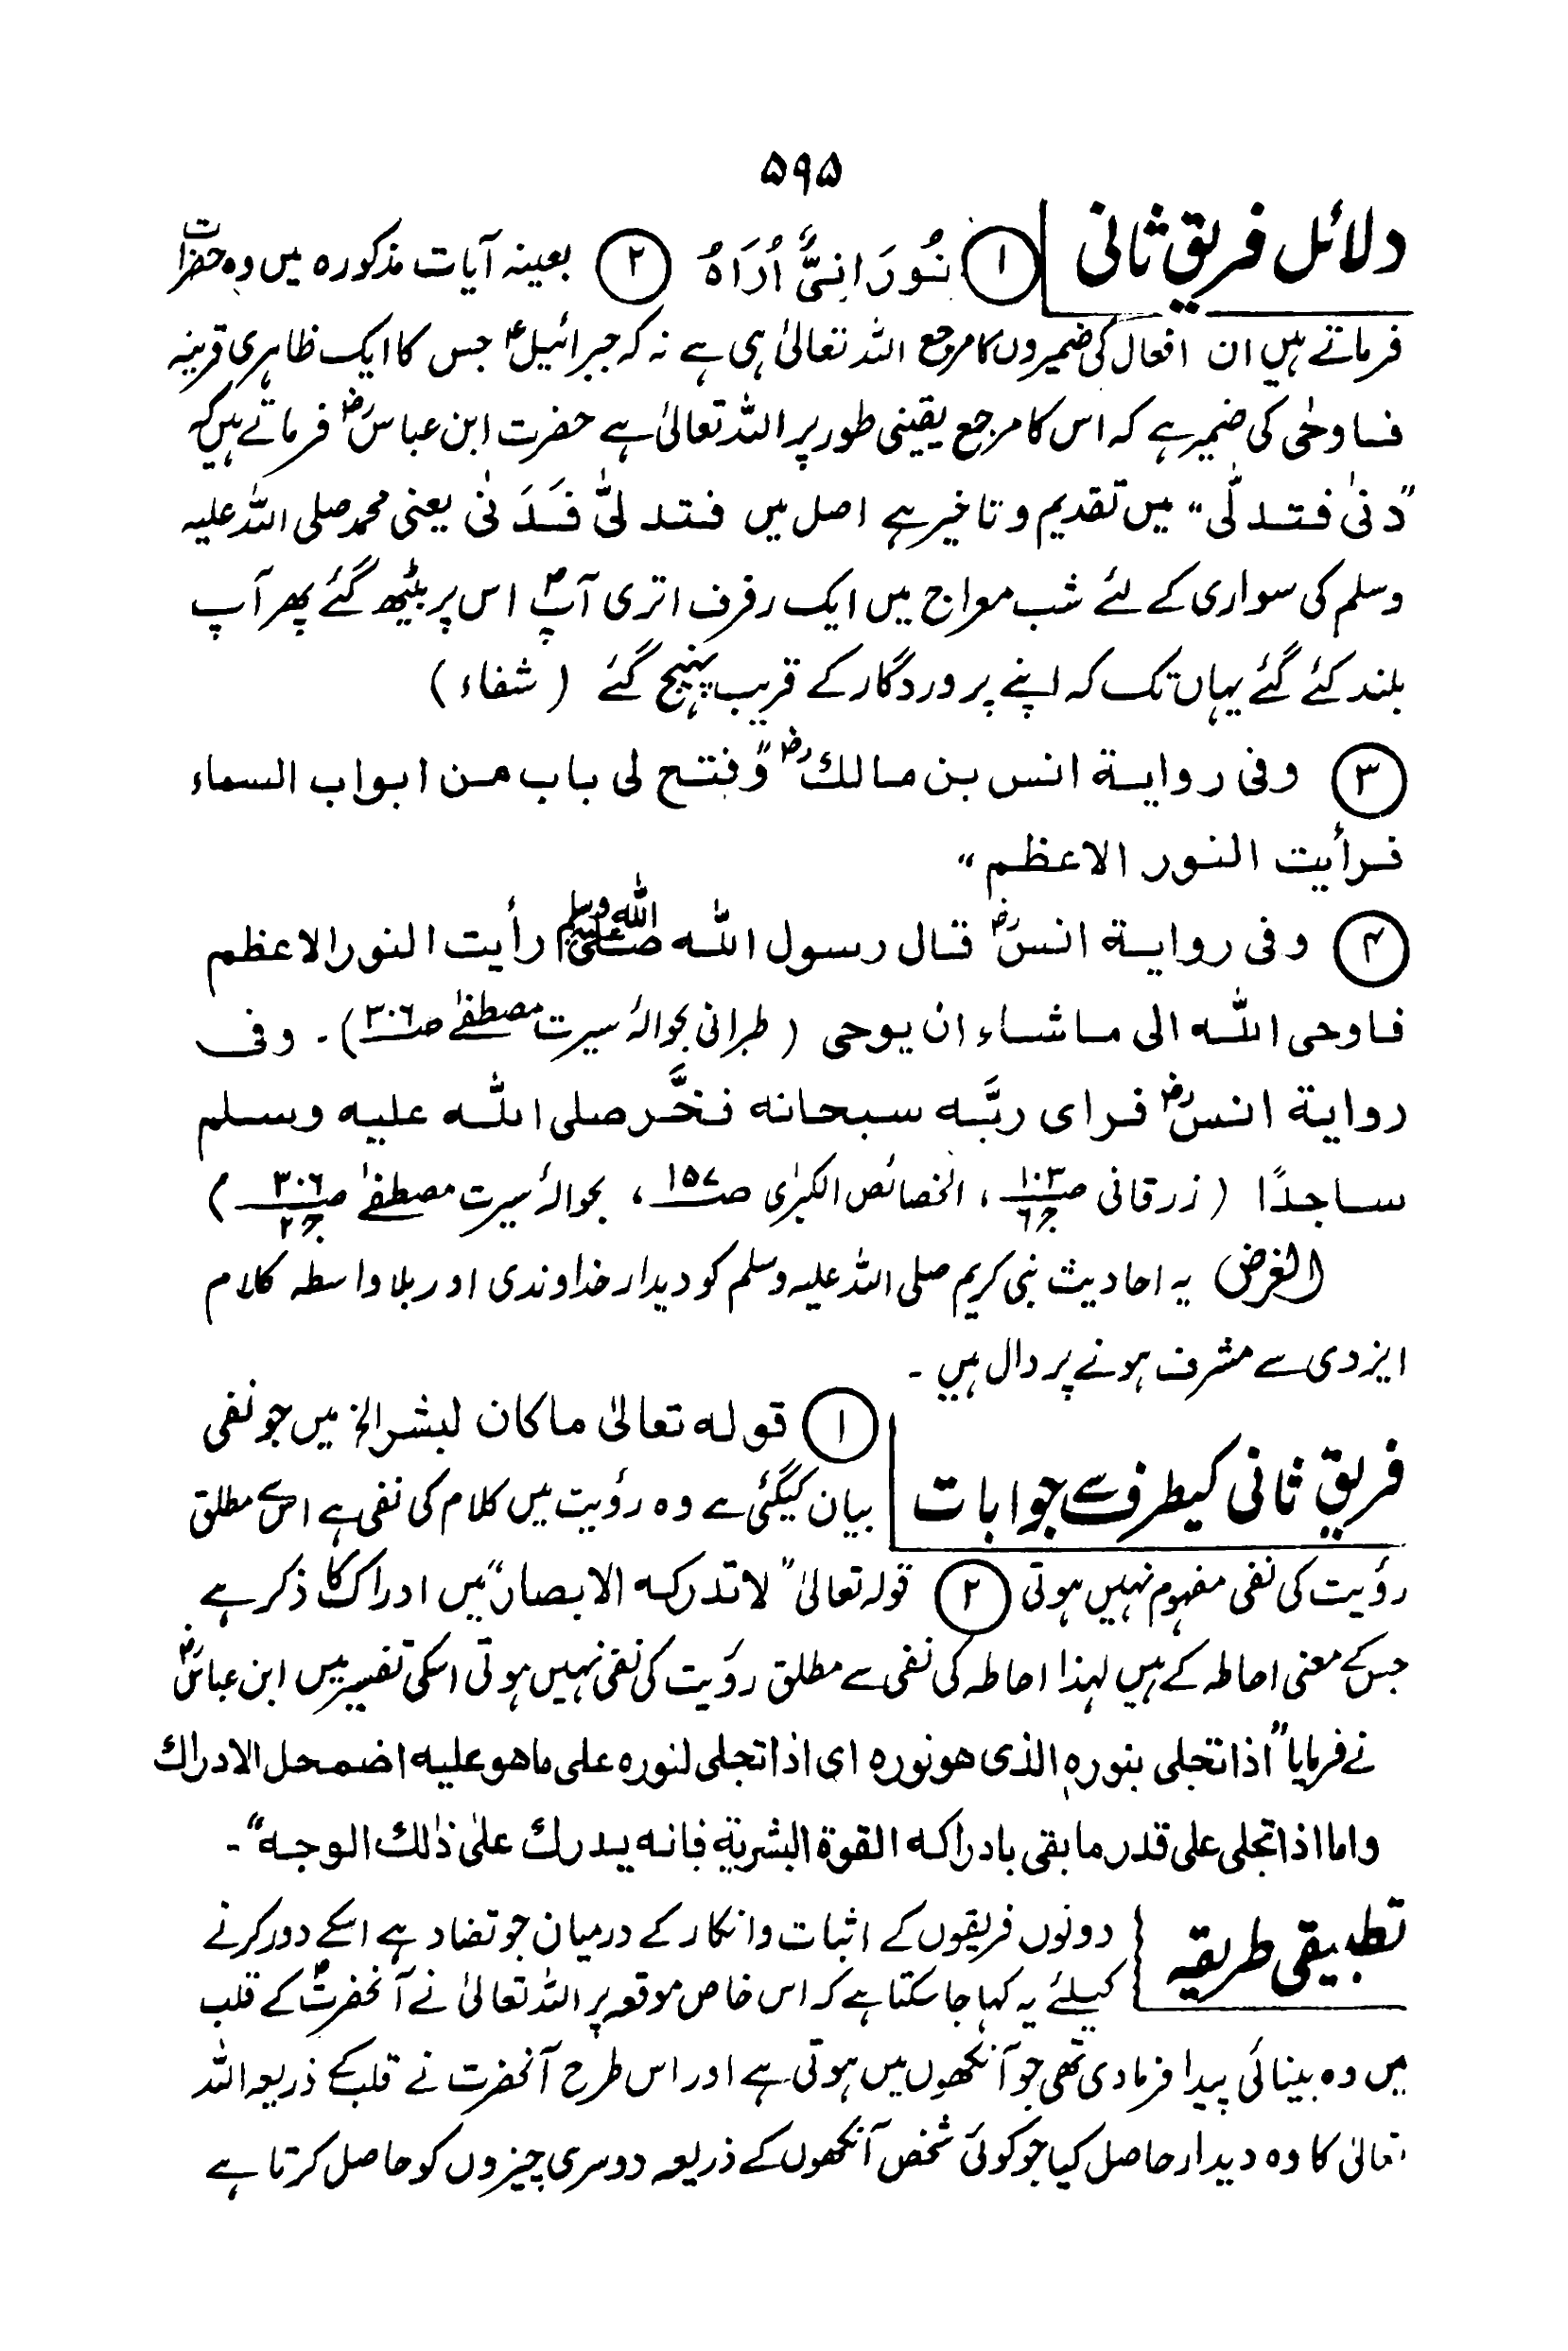 ۵۹۵
دلائل فریق ثانی ① نُورَانِیٌّ اُرَاہُ ② بعینہ آیات مذکورہ میں وہ حضرات
فرماتے ہیں ان افعال کی ضمیروں کا مرجع اللہ تعالیٰ ہی ہے نہ کہ جبرائیلؑ جس کا ایک ظاہری قرینہ
فاوحٰی کی ضمیر ہے کہ اس کا مرجع یقینی طور پر اللہ تعالیٰ ہے حضرت ابن عباسؓ فرماتے ہیں کہ
”دنٰی فتدلّٰی“ میں تقدیم و تاخیر ہے اصل میں فتدلیّٰ فَدَنٰی یعنی محمد صلی اللہ علیہ
وسلم کی سواری کے لئے شب معراج میں ایک رفرف اتری آپؐ اس پر بیٹھ گئے پھر آپ
بلند کئے گئے یہاں تک کہ اپنے پروردگار کے قریب پہنچ گئے (شفاء)
③ وفی روایۃ انس بن مالکؓ ”وفتح لی باب من ابواب السماء
فرأیت النور الاعظم“
④ وفی روایۃ انسؓ قال رسول اللّٰہ صلی اللہ علیہ وسلم رأیت النور الاعظم
فاوحی اللّٰہ الی ماشاء ان یوحی (طبرانی بحوالۂ سیرت مصطفےٰ صـ۳۰۶)۔ وفی
روایۃ انسؓ فرای ربَّہ سبحانہ فخَّر صلی اللّٰہ علیہ وسلم
ساجدًا (زرقانی صـ۱۰۳ ج۶، الخصائص الکبرٰی صـ۱۵۷، بحوالۂ سیرت مصطفےٰ صـ۳۰۶ ج۲)
الغرض یہ احادیث نبی کریم صلی اللہ علیہ وسلم کو دیدار خداوندی اور بلا واسطہ کلام
ایزدی سے مشرف ہونے پر دال ہیں ۔
فریق ثانی کیطرف سے جوابات ① قولہ تعالیٰ ماکان لبشر الخ میں جو نفی
بیان کیگئی ہے وہ رؤیت میں کلام کی نفی ہے اس سے مطلق
رؤیت کی نفی مفہوم نہیں ہوتی ② قولہ تعالیٰ ”لاتدرکہ الابصار“ میں ادراک کا ذکر ہے
جس کے معنی احاطہ کے ہیں لہذا احاطہ کی نفی سے مطلق رؤیت کی نفی نہیں ہوتی اسکی تفسیر میں ابن عباسؓ
نے فرمایا ”اذا تجلی بنورہ الذی ھو نورہ ای اذا تجلی لنورہ علی ماھو علیہ اضمحل الادراک
واما اذا تجلی علی قدر مابقی بادراکہ القوۃ البشریۃ فانہ یدرک علیٰ ذٰلک الوجہ“۔
تطبیقی طریقہ دونوں فریقوں کے اثبات وانکار کے درمیان جو تضاد ہے اسکے دور کرنے
کیلئے یہ کہا جا سکتا ہے کہ اس خاص موقعہ پر اللہ تعالیٰ نے آنحضرتؐ کے قلب
میں وہ بینائی پیدا فرمادی تھی جو آنکھوں میں ہوتی ہے اور اس طرح آنحضرت نے قلب کے ذریعہ اللہ
تعالیٰ کا وہ دیدار حاصل کیا جو کوئی شخص آنکھوں کے ذریعہ دوسری چیزوں کو حاصل کرتا ہے